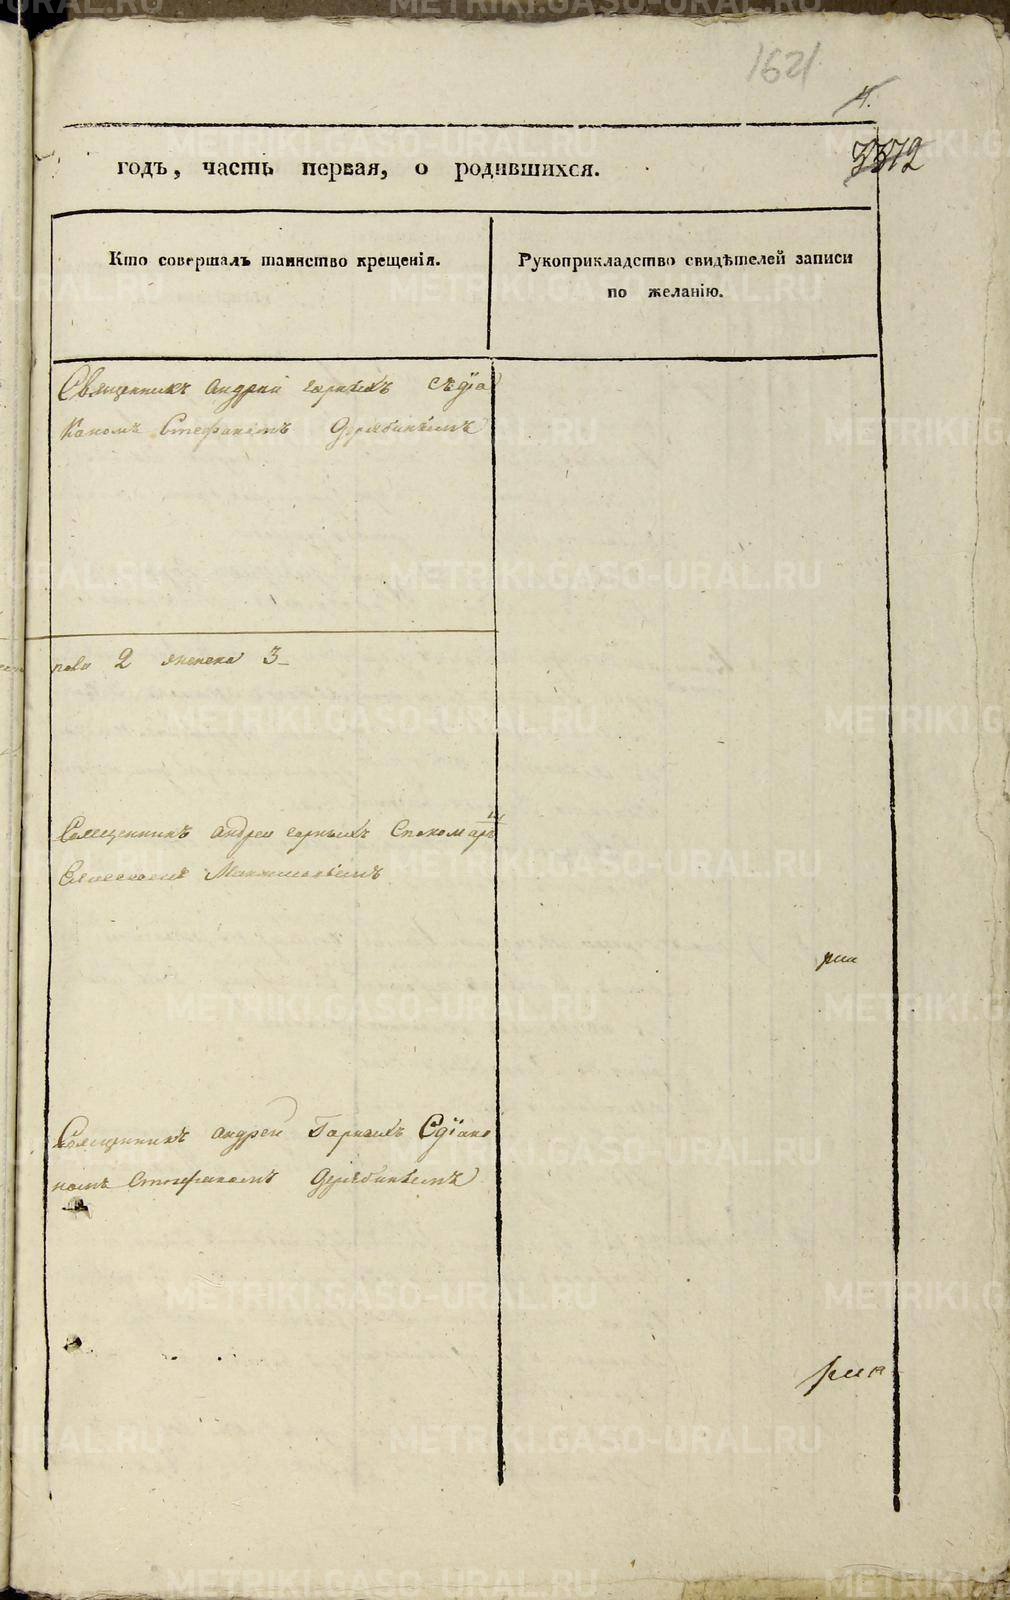 1621
4.
годъ, часть первая, о родившихся.
3372
Кто совершалъ таинство крещенія.
Рукоприкладство свидѣтелей записи
по желанію.
Священникъ Андрей Горныхъ съ діа
кономъ Стефаномъ Дерябинымъ
пола 2 женска 3
Священникъ Андрей Горныхъ Спономаръ
Максимовымъ
Священникъ Андрей Горныхъ Сдіако
номъ Стефаномъ Дерябинымъ
METRIKI.GASO-URAL.RU